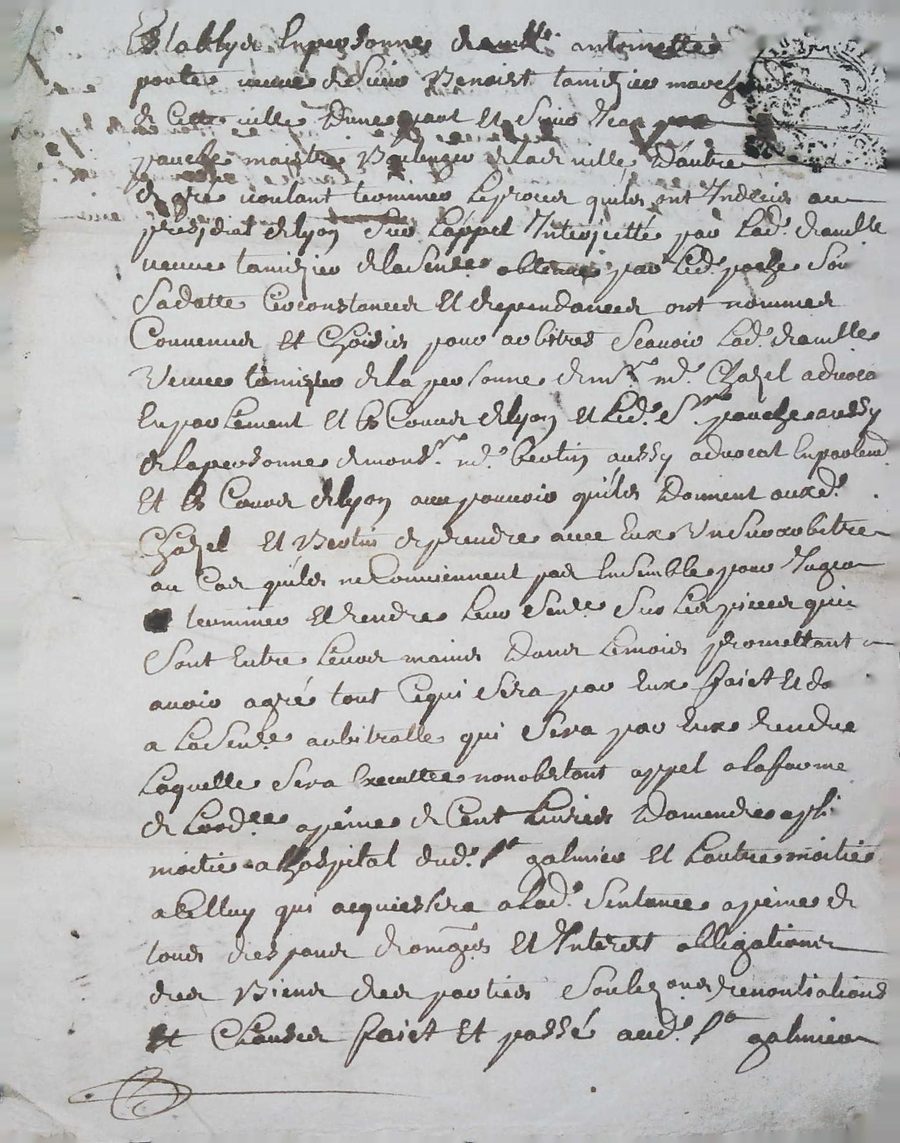 Establys en personnes dam.lle antoinette
porte veuve de sieur Benoist tamizier march
de Cette ville D'une part Et Sieur Jean
panche maistre Boulenger de lad. ville, D'autre
de gré voulant terminer Le proces quils ont Indecis au
presidial de lyon Sur L'appel Interjetté par Lad. damlle
veuve tamizier de la sen.ce obtenue par Led. panche Son
Sadatte Circonstances Et dependances ont nommes
Convenus et Choisis pour arbitres Scavoir Lad. damlle
Veuve tamizier de la personne de m.r m.e Chazel advocat
En parlement Et Es Cours de lyon Et Led. S.r panche aussy
de la personne de mons.r m.e bertin aussy advocat En parlem.t
Et Es Cours de lyon avec pouvoir quils Donnent auxd.
Chazel Et Bertin de prendre avec Eux Un Surarbitre
au Cas quils ne Conviennent pas Ensemble pour Juger
terminer Et rendre Leur Sen.ce Sur Les pieces qui
Sont Entre Leurs mains Dans Le mois promettant
avoir agré tout Ce qui Sera par Eux faict Et de
a La Sen.ce arbitralle qui Sera par Eux rendue
Laquelle Sera Executtee nonobstant appel a la forme
de Lord.ce apeine de Cent Livres Damende apli
moitie a Lhospital dud. S.t galmier Et Lautre moitie
a Celluy qui acquiessera a Lad. Sentance apeine de
tous despans domages Et Interest obligations
des Biens des parties Soubz renontiations
Et Clauses faict Et passé aud. S.t galmier